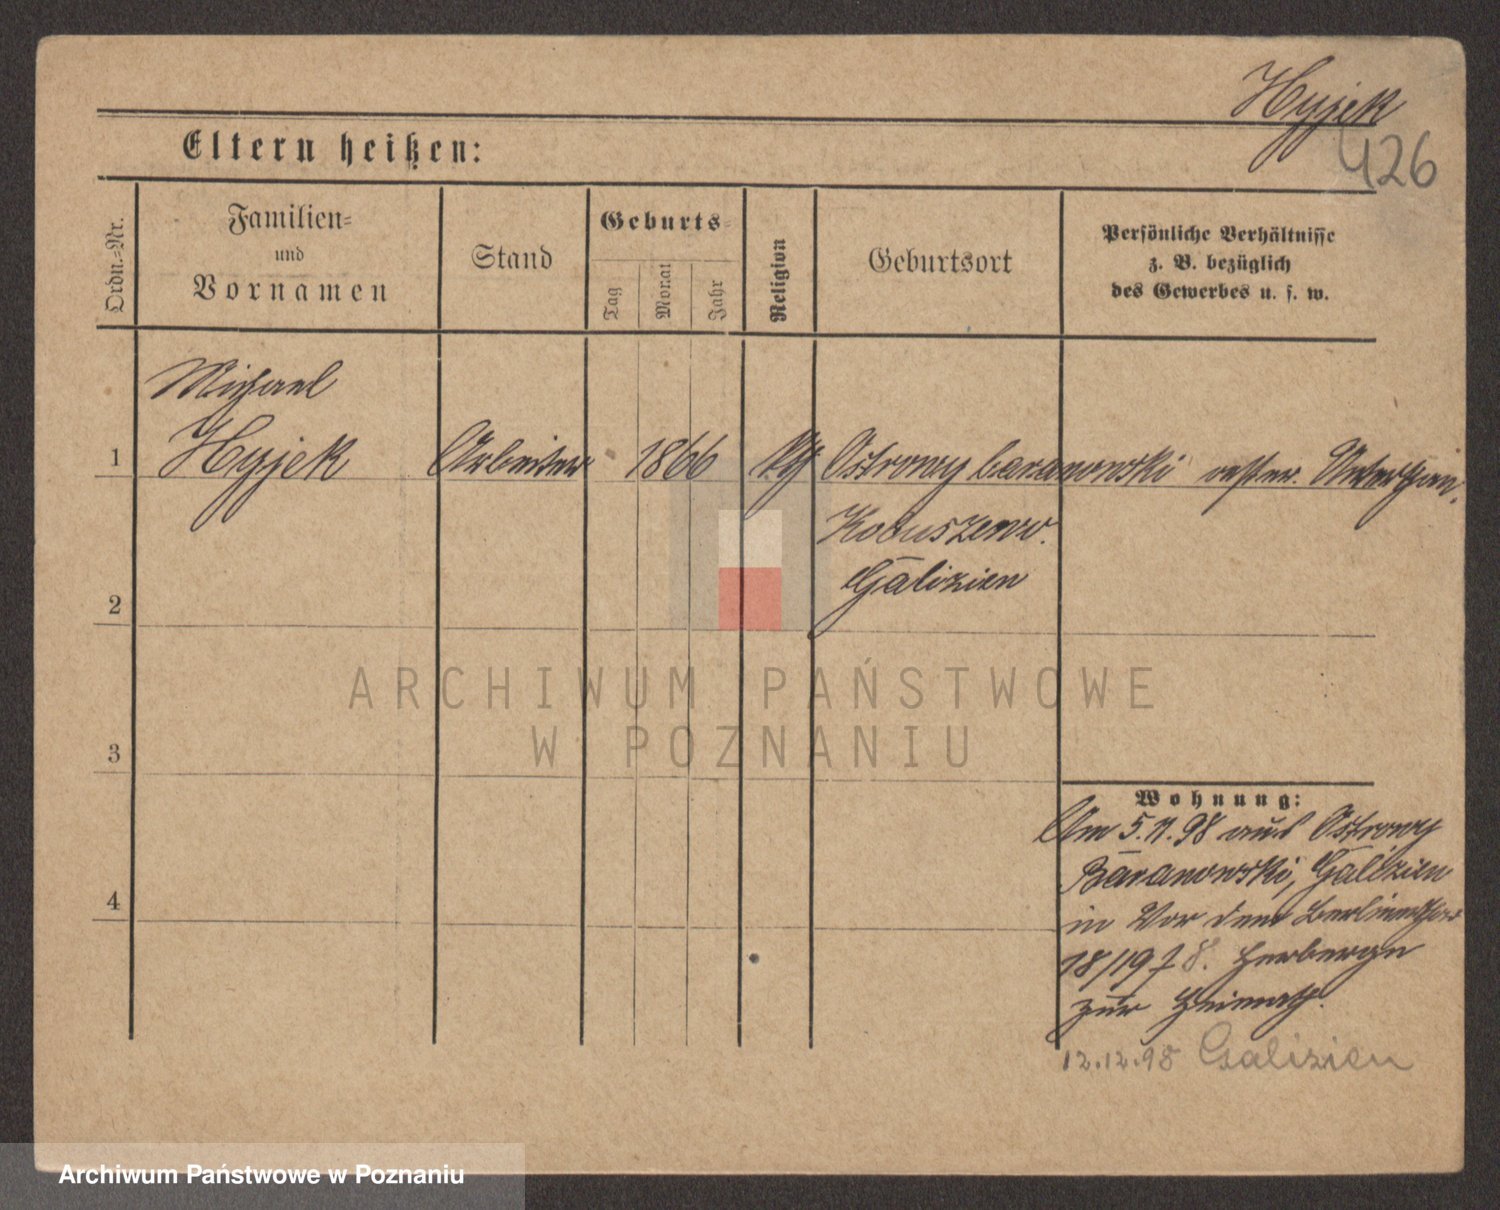 Hyjek
426
Eltern heißen:
Ordn.=Nr.
Familien=
und
Vornamen
Stand
Geburts=
Tag
Monat
Jahr
Religion
Geburtsort
Persönliche Verhältnisse
z. B. bezüglich
des Gewerbes u. s. w.
Michael
1 Hyjek Arbeiter 1866 Ostrowy baranowski oester. Unterthan.
Kobuszenw.
Galizien
2
ARCHIWUM PAŃSTWOWE
W POZNANIU
3
Wohnung:
Am 5.11.98 aus Ostrowy
Baranowski, Galizien
in Vor dem Berlinerthor
18/19 Herberge
zur Heimath.
4
12.12.98 Galizien
Archiwum Państwowe w Poznaniu